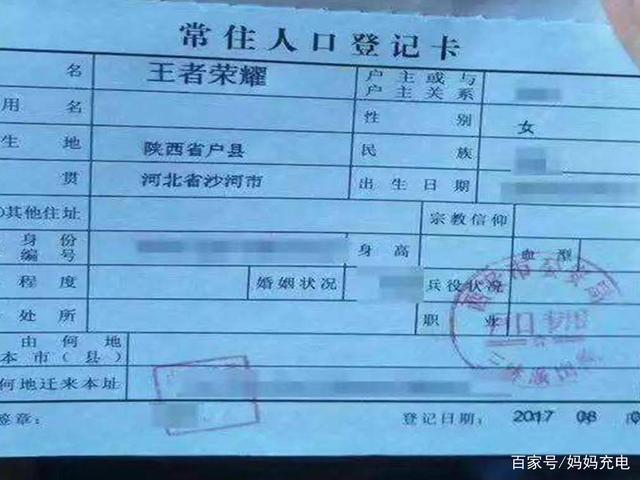 常住人口登记卡
名 王者荣耀 户主或与户主关系
用名 性别 女
生地 陕西省户县 民族
贯 河北省沙河市 出生日期
其他住址 宗教信仰
身份编号 身高 血型
程度 婚姻状况 兵役状况
处所 职业
由何地
本市（县）
何地迁来本址
签章： 登记日期： 2017 08
百家号/妈妈充电